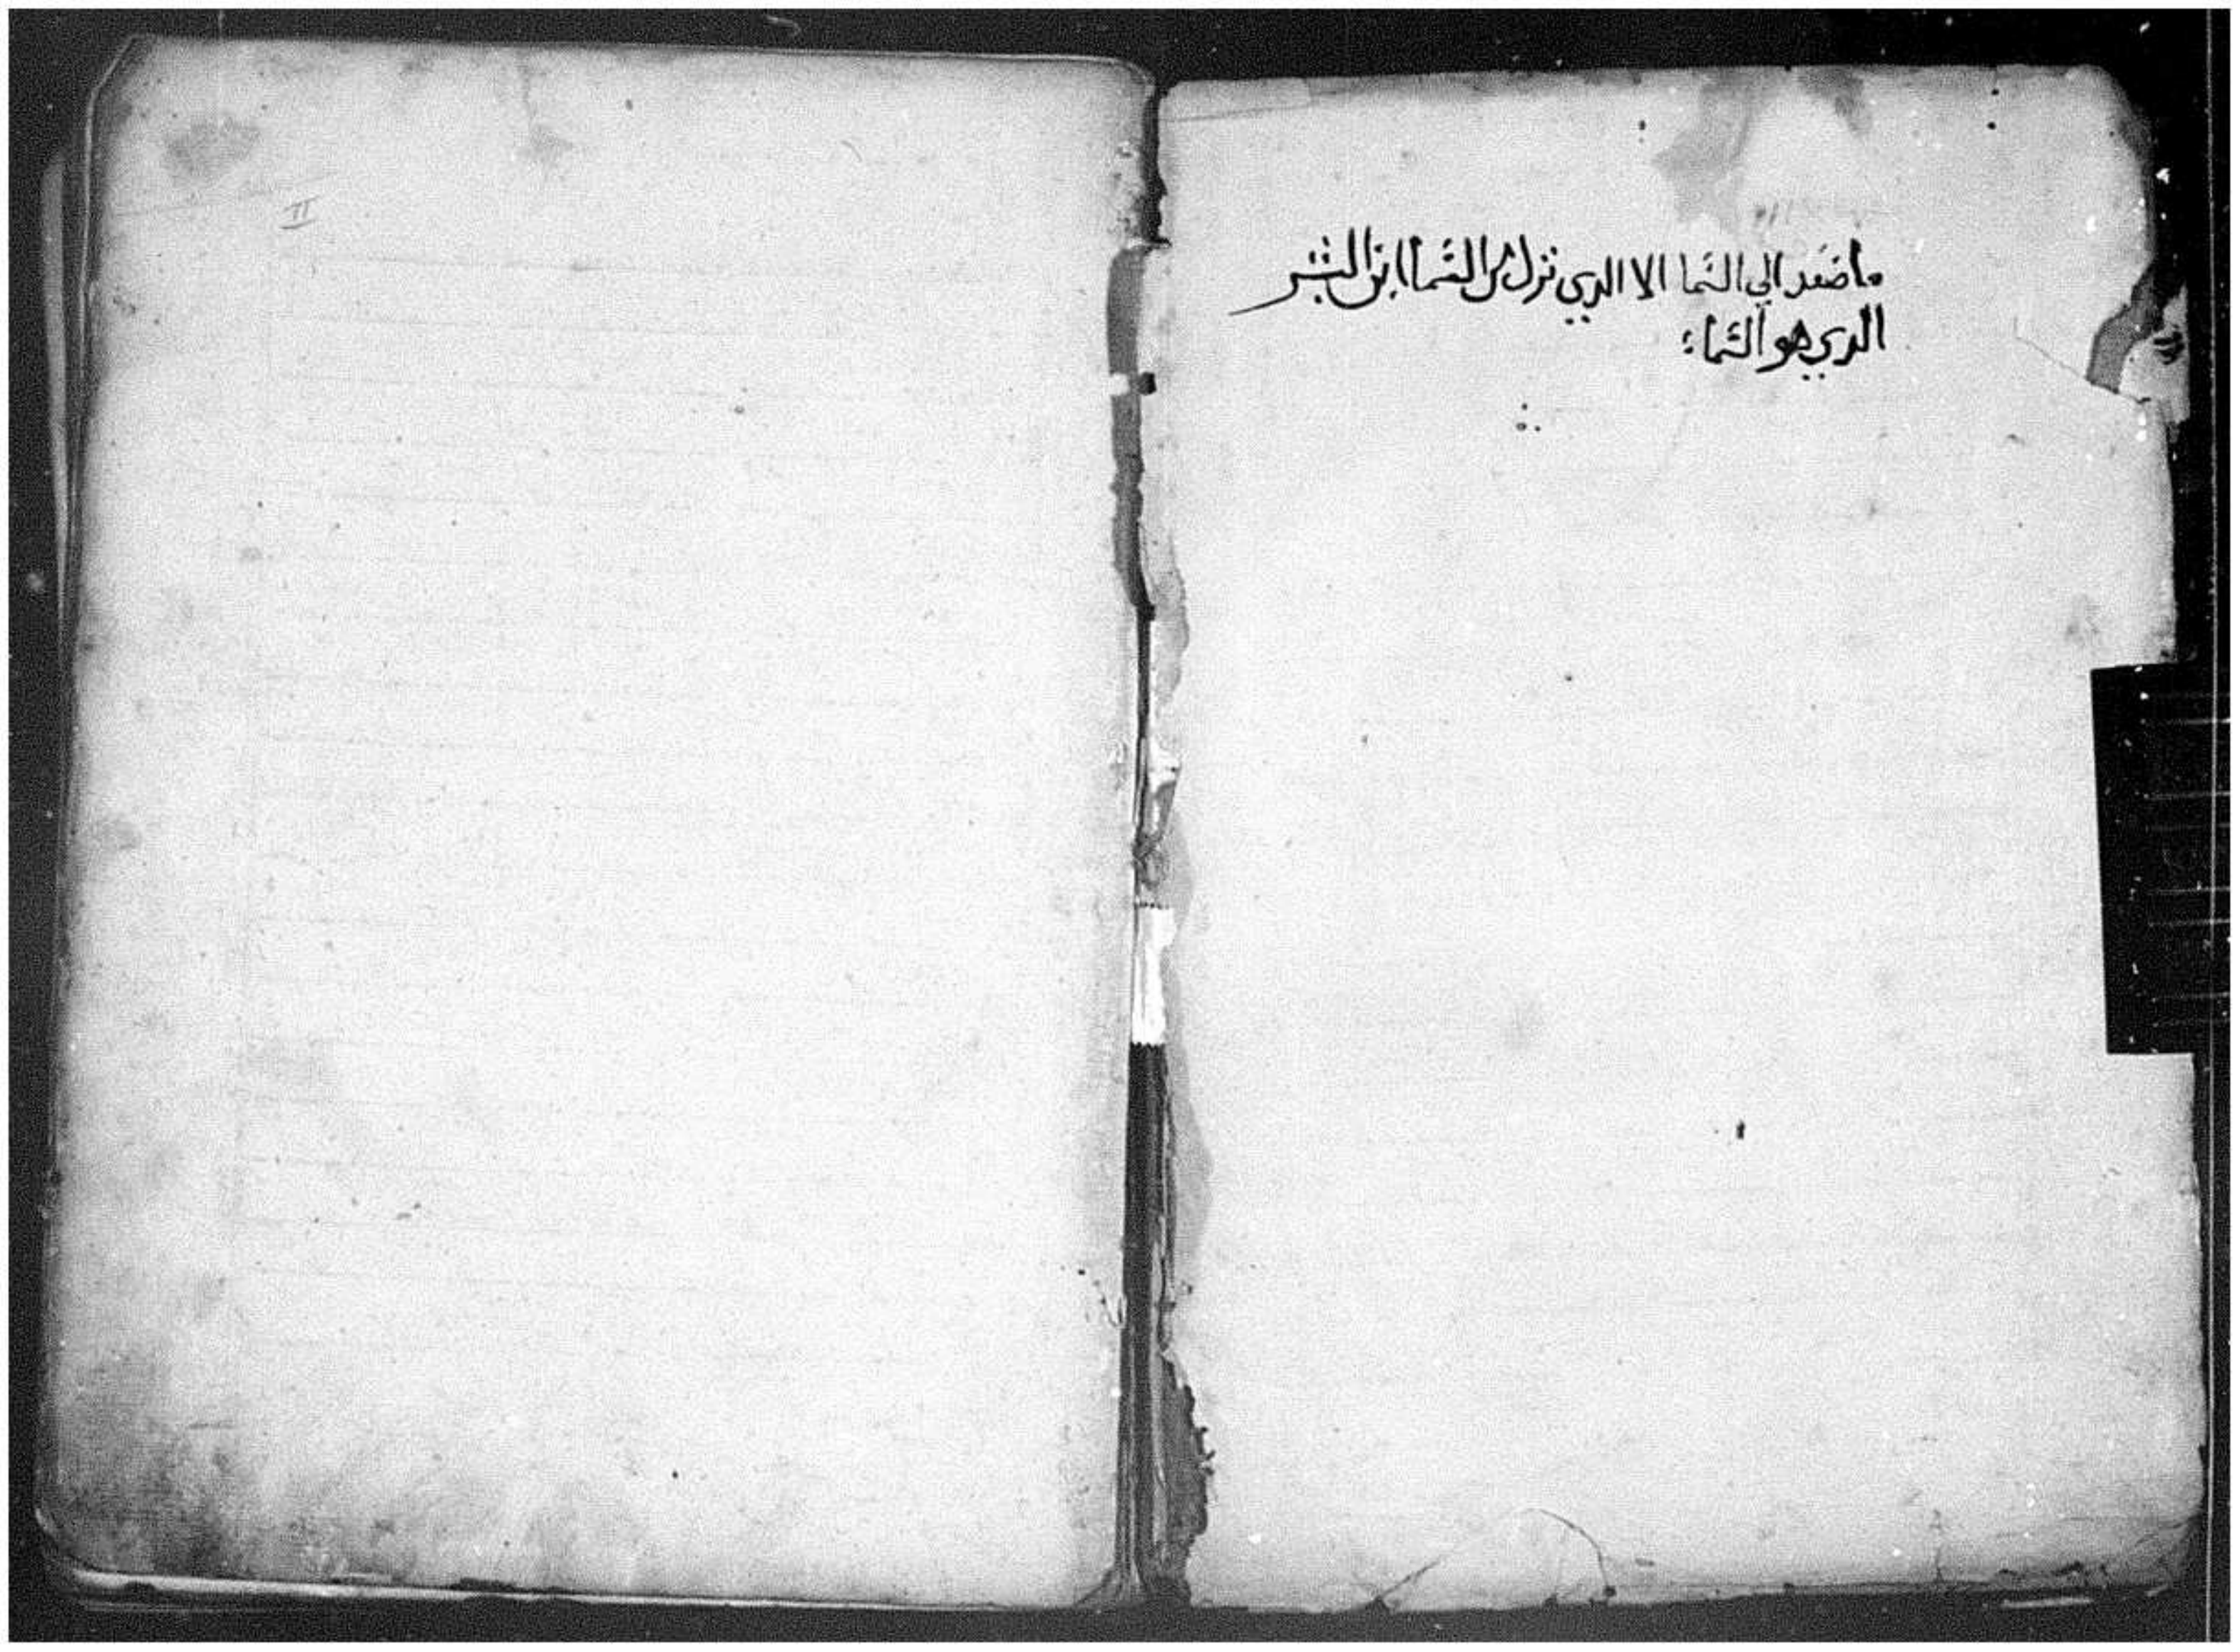 ما صعد الي السما الا الدي نزل من السما ابن البشر
الدي هو السماء
II